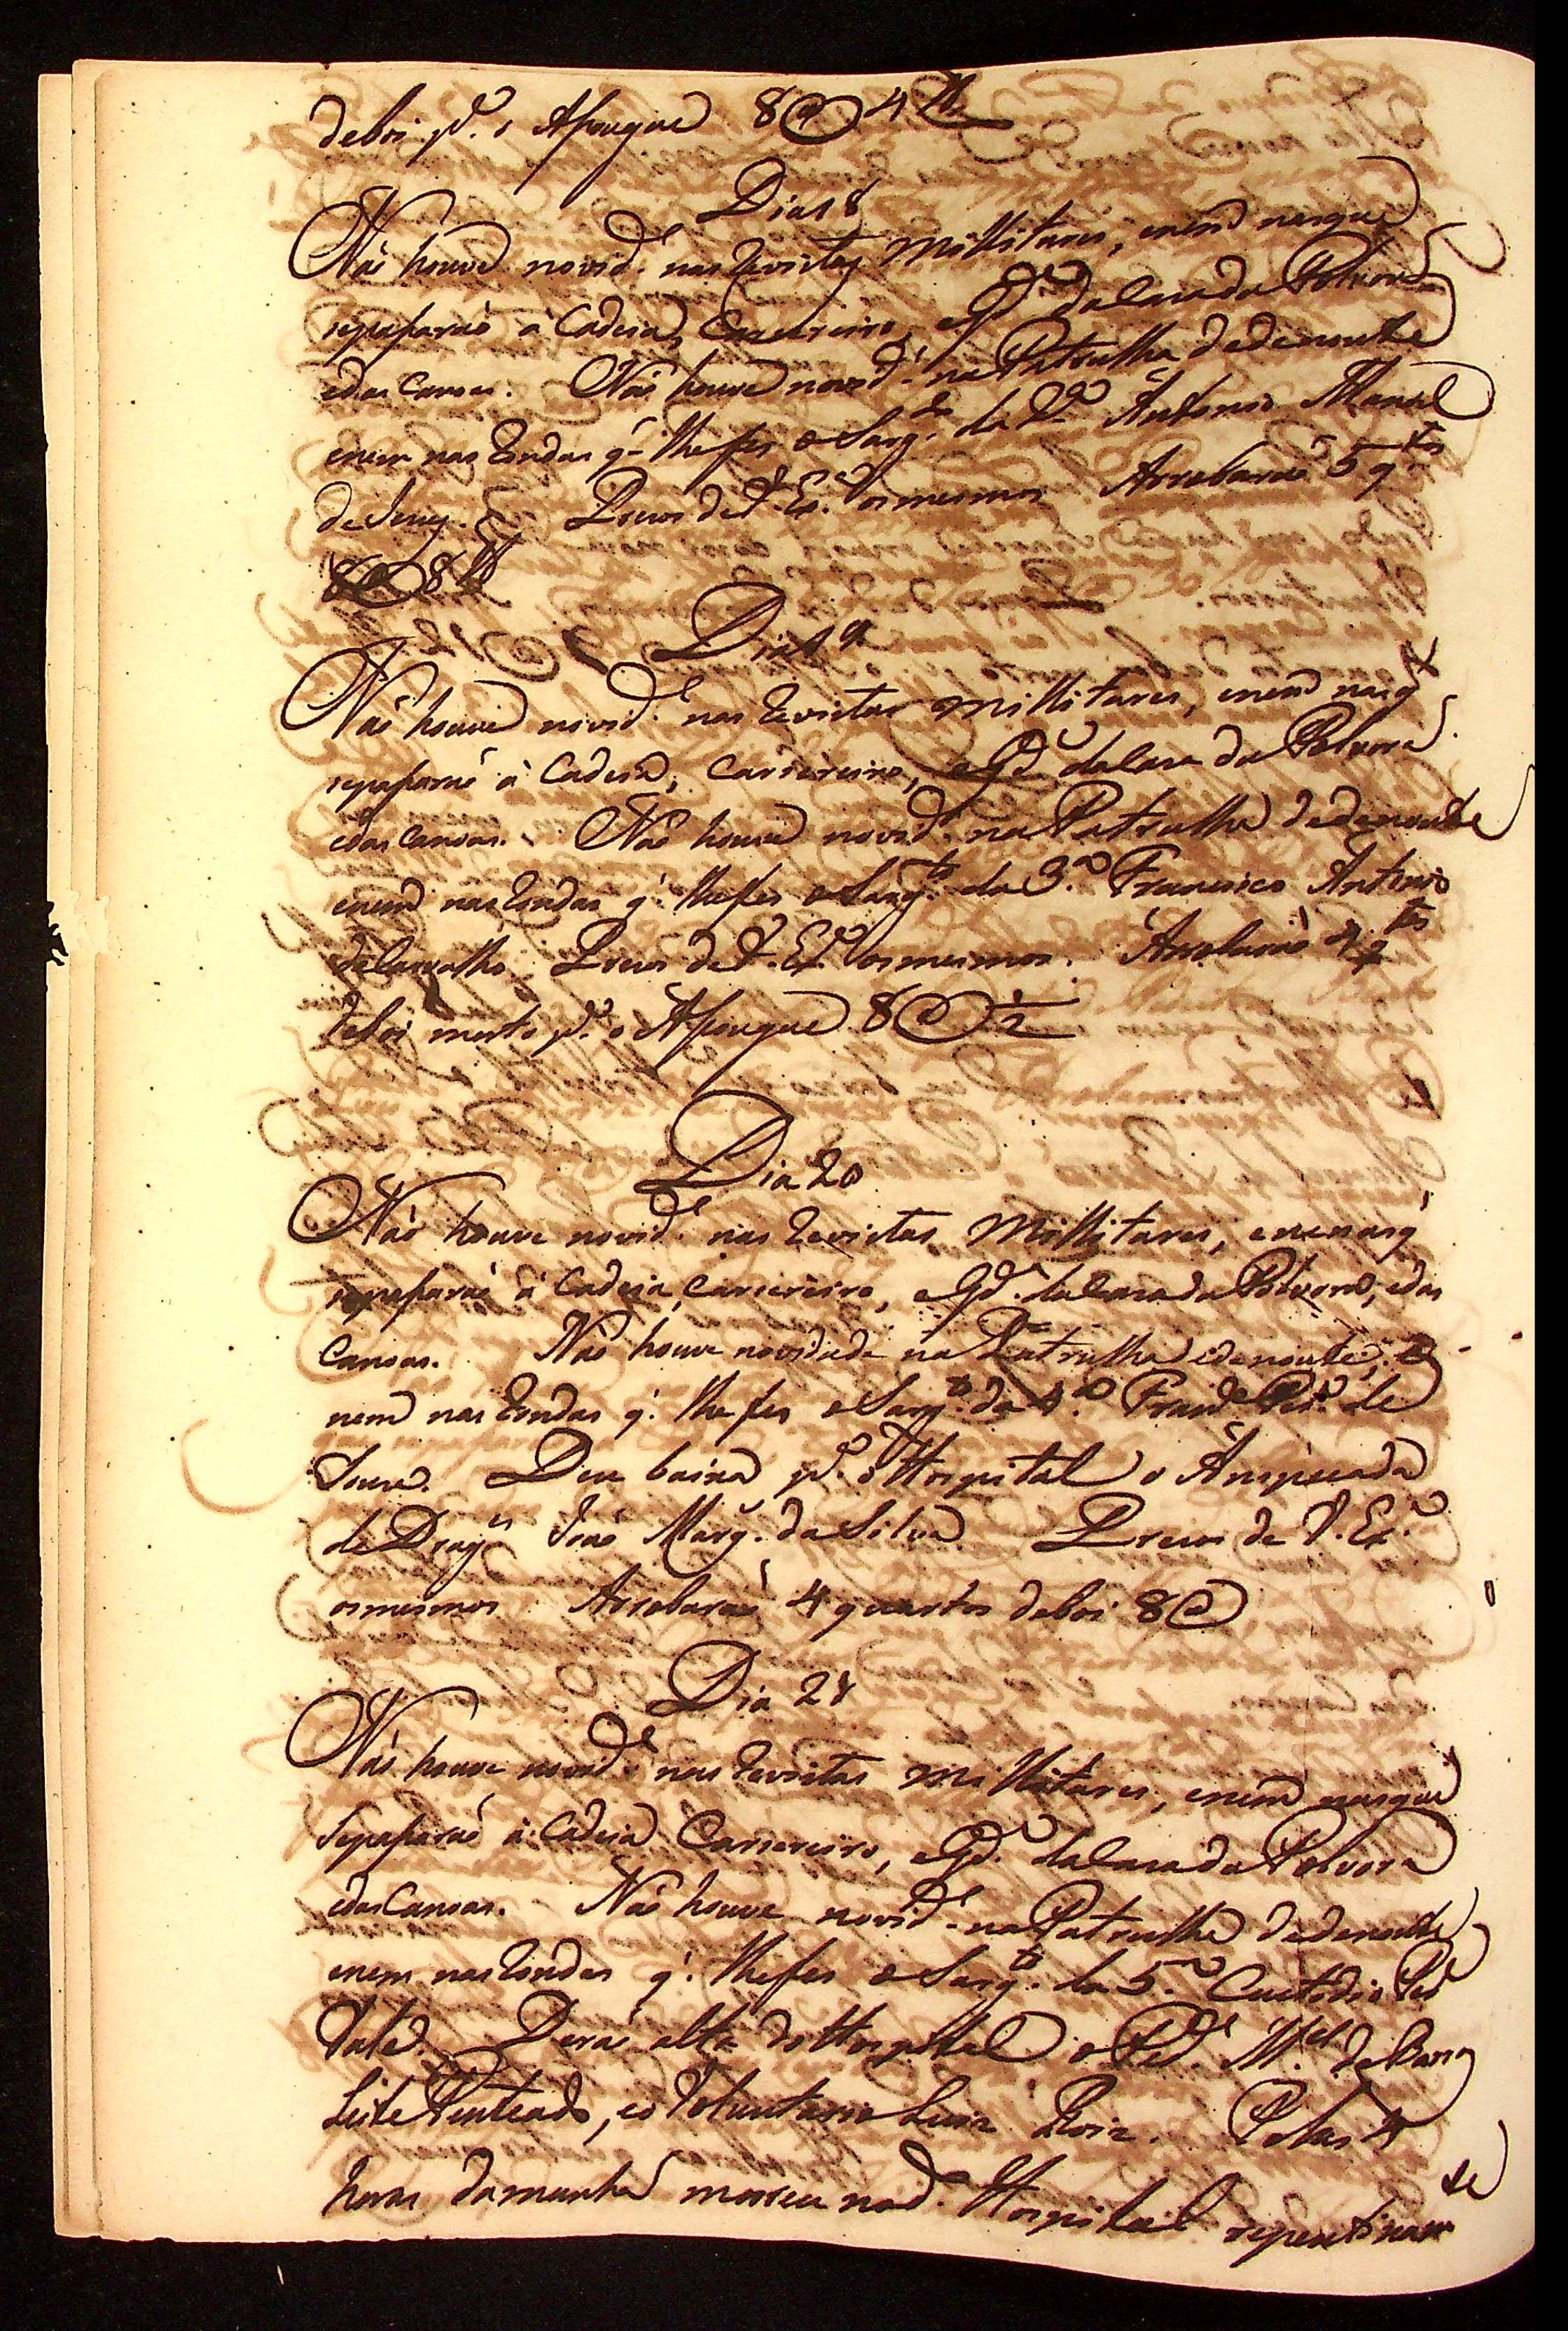 de boi p.ª o Asougue 8@ 4 lb
Dia 18
Não houve novid.e nas Revistas Millitares, enem nasque
sepaparaõ á Cadeia, Carsereiro, eGd.ª dalasa da Polvora
edas Canoas. Não houve novid.e na Patrulha dedenoute
enem nas Rondas q' lhefes o Sarg.to da 2.ª Antonio Manoel
de Prezos de V. Ex.ª osmesmos Arrobaraõ 5 q.tos
8 lb
Dia 19
Não houve novid.e nas Revistas Millitares, enem nasq'
sepaparaõ á Cadeia, Carsereiro, eGd.ª dalasa da Polvora
edas Canoas. Não houve novid.e na Patrulha dedenoute
enem nas Rondas q' lhefes o Sarg.to da 3.ª Francisco Antonio
deCarvalho. Prezos de V. Ex.ª osmesmos. Arrobaraõ 4 q.tos
deboi morto p.ª o Asougue 8@ 1/2
Dia 20
Não houve novid.e nas Revistas Millitares, enenasq'
sepaparaõ á Cadeia, Carsereiro, eGd.ª dalasa da Polvora, edas
Canoas. Não houve novidade na Patrulha edenoute, e
nem nas Rondas q' lhe fes o Sarg.to da 4.ª de
Souza. Deu baixa p.ª o Hospital o Anspecada
de Drag.es João Marq. da Silva. Prezos de V. Ex.ª
osmesmos Arrobaraõ 4 quartos deboi 8@
Dia 21
Não houve novid.e nas Revistas Millitares, enem nasque
Sepaparaõ á Cadeia Carsereiro, eGd.ª dalasa da Polvora
edas Canoas. Não houve novid.e na Patrulha dedenoute
enem nas Rondas q' lhefes o Sarg.to da 5.ª Custodio
Deraõ alta do Hospital o M.el de Barros
Leite Penteado, eo Voluntario Luiz Roiz. Pelas 4
horas damanhã morreu nod.º Hospital repentinam.te